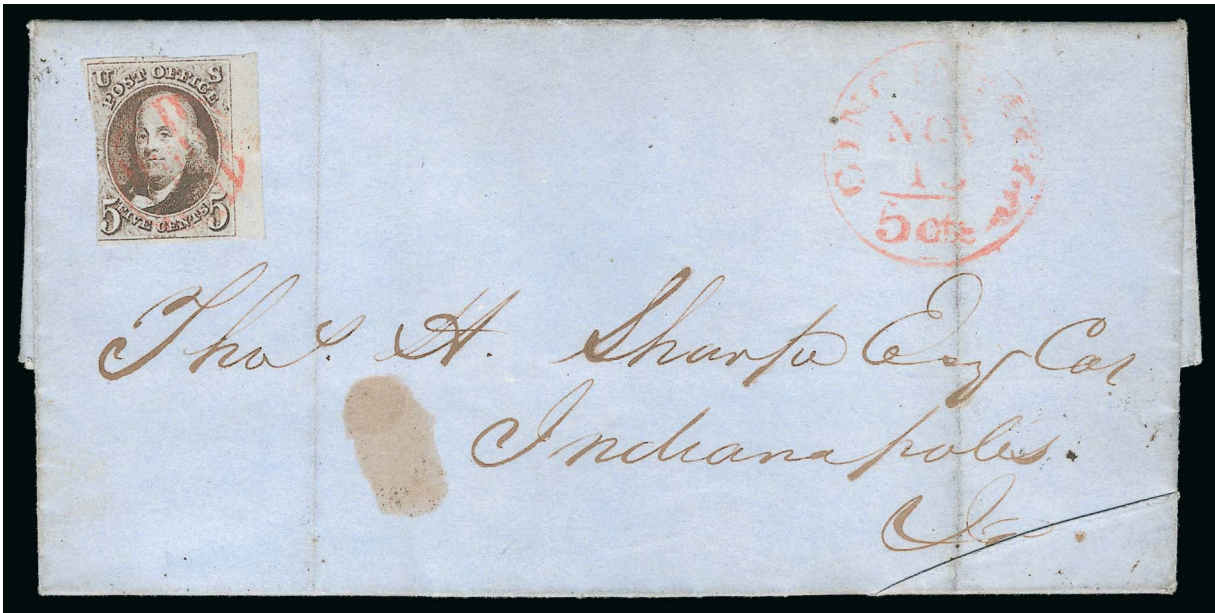 U S
POST OFFICE
5 FIVE CENTS 5
NOV
5 cts
Thos. H. Sharpe Esq Cas
Indianapolis.
Ia.